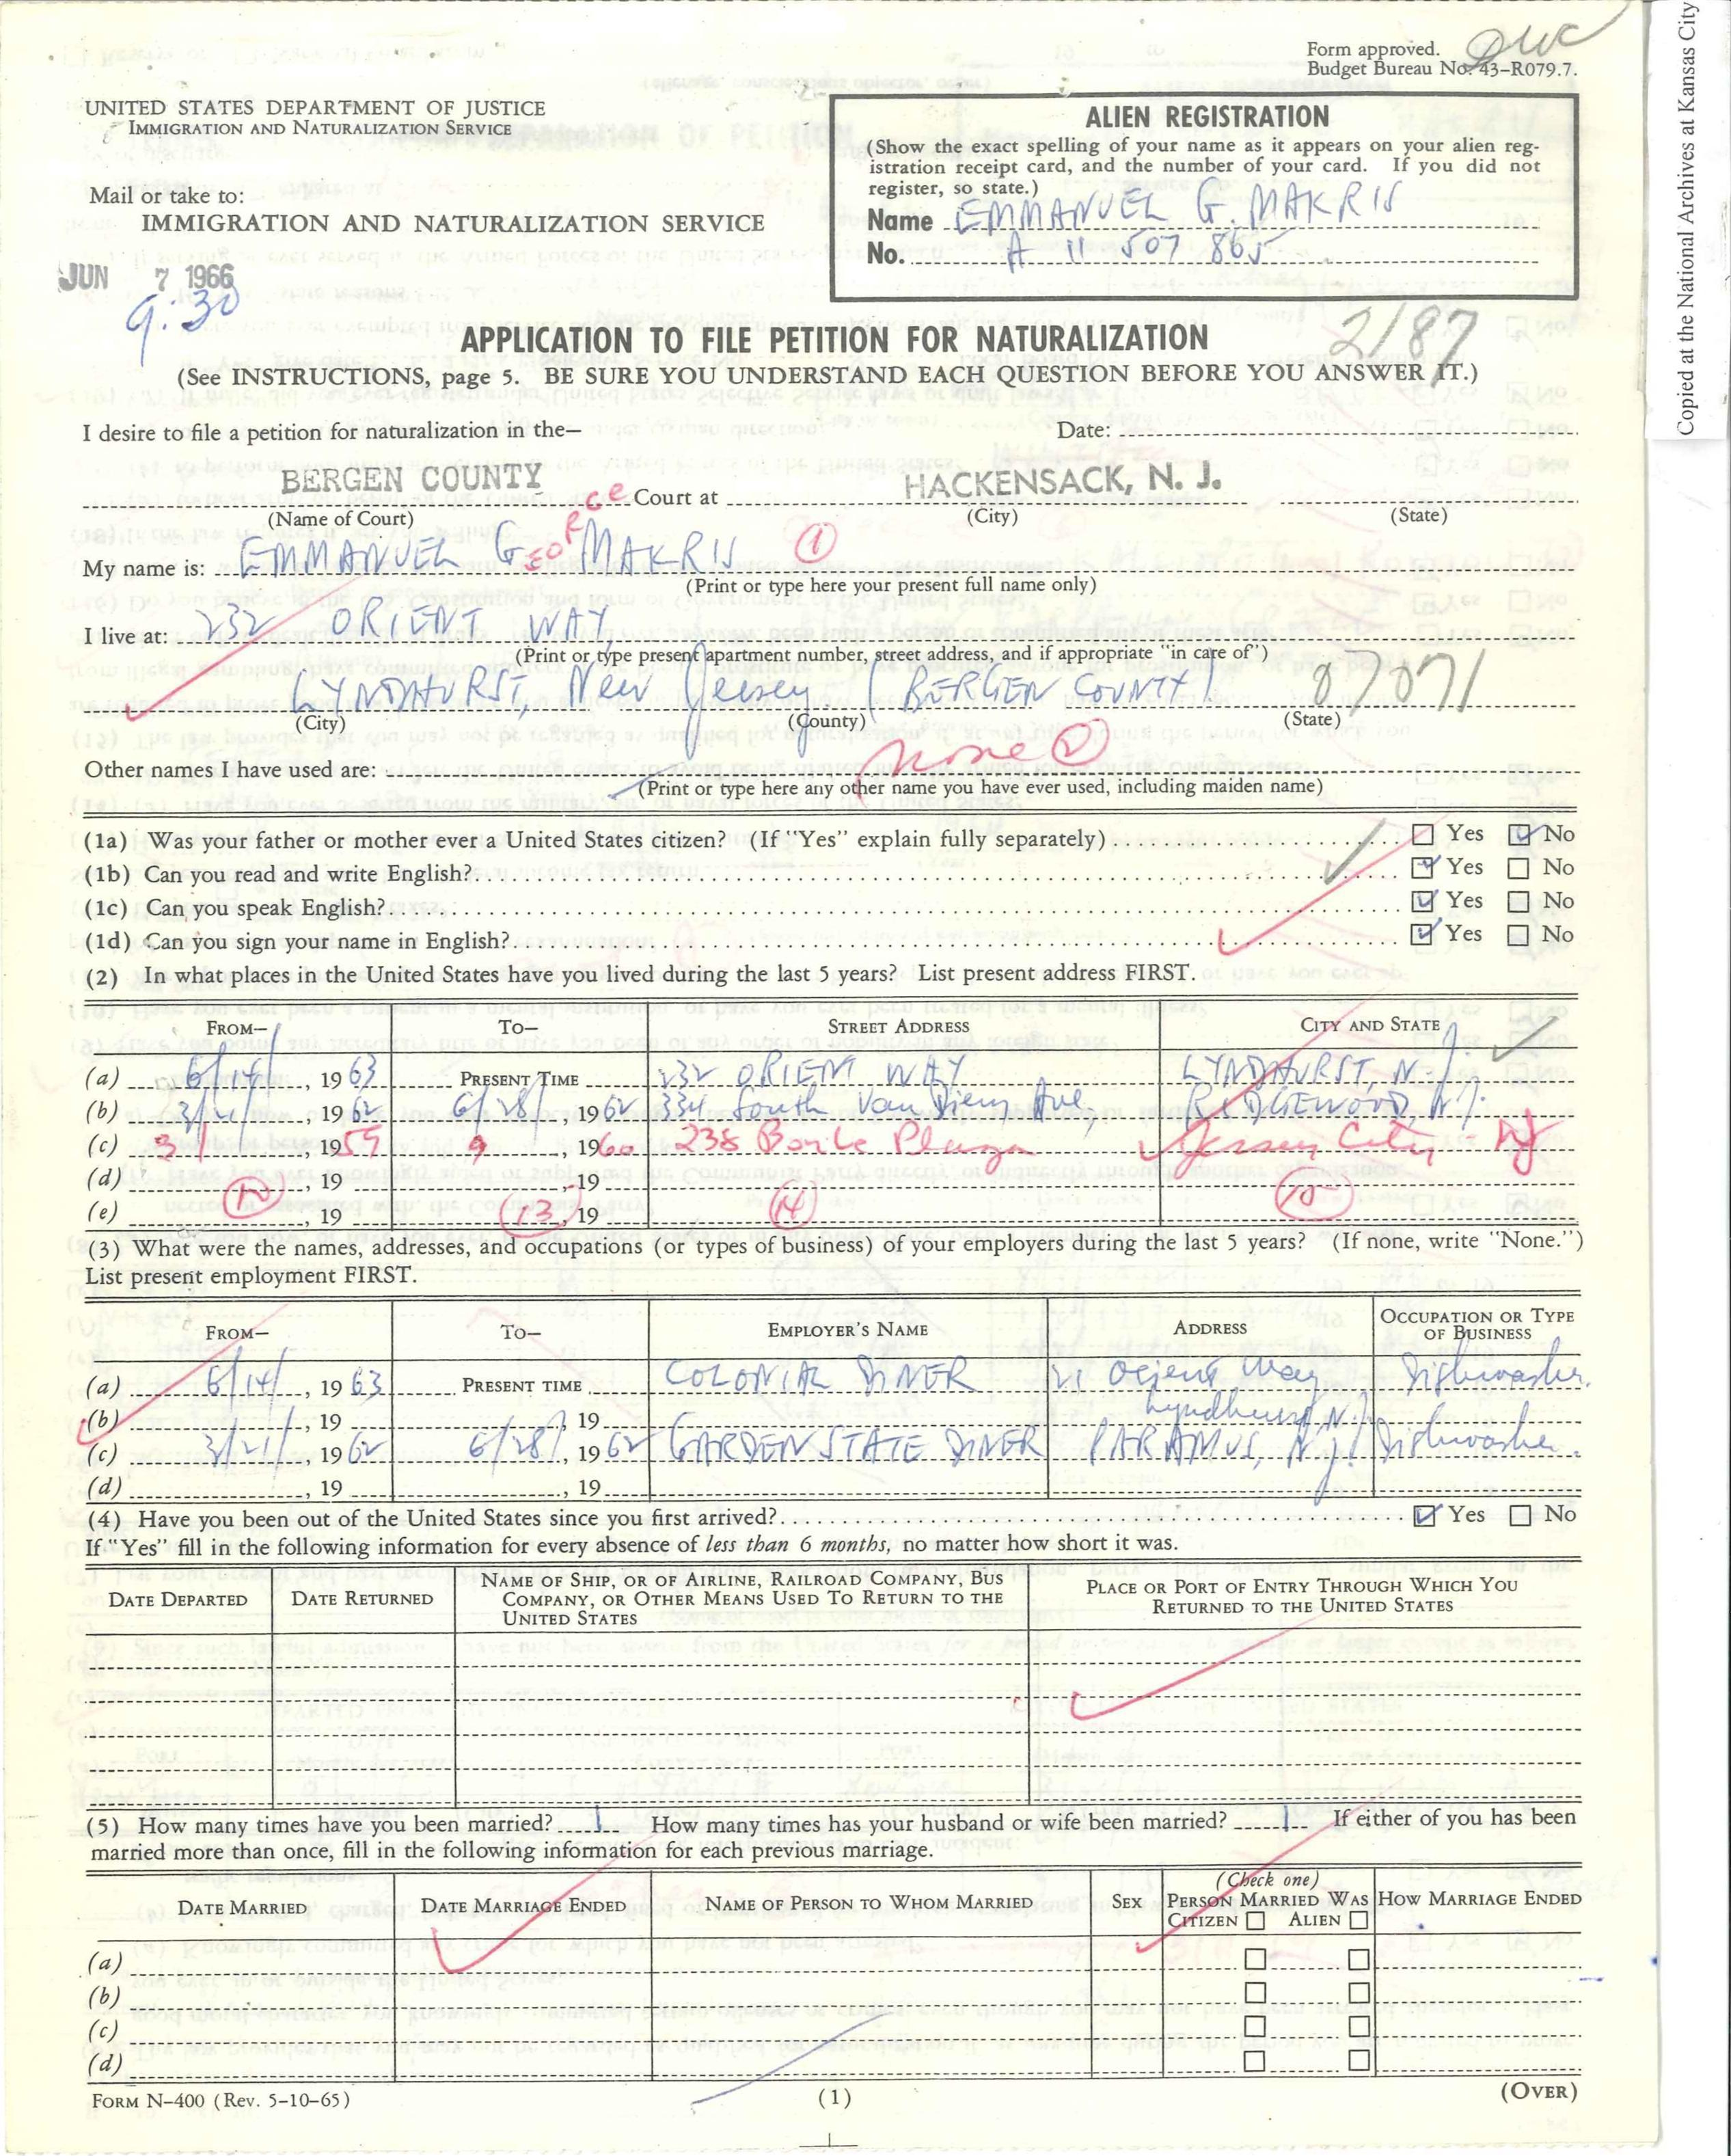 Form approved.
Budget Bureau No. 43-R079.7.
Copied at the National Archives at Kansas City
UNITED STATES DEPARTMENT OF JUSTICE
IMMIGRATION AND NATURALIZATION SERVICE
Mail or take to:
IMMIGRATION AND NATURALIZATION SERVICE
JUN 7 1966
9:30
ALIEN REGISTRATION
(Show the exact spelling of your name as it appears on your alien reg-
istration receipt card, and the number of your card. If you did not
register, so state.)
Name EMMANUEL G. MAKRIS
No. A 11 507 865
2/87
APPLICATION TO FILE PETITION FOR NATURALIZATION
(See INSTRUCTIONS, page 5. BE SURE YOU UNDERSTAND EACH QUESTION BEFORE YOU ANSWER IT.)
I desire to file a petition for naturalization in the— Date:
BERGEN COUNTY Court at HACKENSACK, N. J.
(Name of Court) (City) (State)
My name is: EMMANUEL GEORGE MAKRIS 1
(Print or type here your present full name only)
I live at: 232 ORIENT WAY
(Print or type present apartment number, street address, and if appropriate "in care of")
LYNDHURST, New Jersey (BERGEN COUNTY) 07071
(City) (County) (State)
Other names I have used are: None 2
(Print or type here any other name you have ever used, including maiden name)
(1a) Was your father or mother ever a United States citizen? (If "Yes" explain fully separately) Yes No
(1b) Can you read and write English? Yes No
(1c) Can you speak English? Yes No
(1d) Can you sign your name in English? Yes No
(2) In what places in the United States have you lived during the last 5 years? List present address FIRST.
FROM— TO— STREET ADDRESS CITY AND STATE
(a) 6/14/, 1963 PRESENT TIME 232 ORIENT WAY LYNDHURST, N.J.
(b) 3/21/, 1962 6/28/, 1962 334 South Van Dien Ave, RIDGEWOOD, N.J.
(c) 3/, 1959 9, 1960 238 Plaza Jersey City NJ
(d) , 19 , 19
(e) , 19 , 19
12 13 14 15
(3) What were the names, addresses, and occupations (or types of business) of your employers during the last 5 years? (If none, write "None.")
List present employment FIRST.
FROM— TO— EMPLOYER'S NAME ADDRESS OCCUPATION OR TYPE OF BUSINESS
(a) 6/14/, 1963 PRESENT TIME COLONIAL DINER 21 Orient Way Dishwasher.
(b) , 19 , 19 Lyndhurst, N.J.
(c) 3/21/, 1962 6/28/, 1962 GARDEN STATE DINER PARAMUS, N.J. Dishwasher.
(d) , 19 , 19
(4) Have you been out of the United States since you first arrived? Yes No
If "Yes" fill in the following information for every absence of less than 6 months, no matter how short it was.
DATE DEPARTED DATE RETURNED NAME OF SHIP, OR OF AIRLINE, RAILROAD COMPANY, BUS COMPANY, OR OTHER MEANS USED TO RETURN TO THE UNITED STATES PLACE OR PORT OF ENTRY THROUGH WHICH YOU RETURNED TO THE UNITED STATES
(5) How many times have you been married? 1 How many times has your husband or wife been married? 1 If either of you has been
married more than once, fill in the following information for each previous marriage.
DATE MARRIED DATE MARRIAGE ENDED NAME OF PERSON TO WHOM MARRIED SEX (Check one) PERSON MARRIED WAS CITIZEN ALIEN HOW MARRIAGE ENDED
(a)
(b)
(c)
(d)
FORM N-400 (Rev. 5-10-65) (1) (OVER)